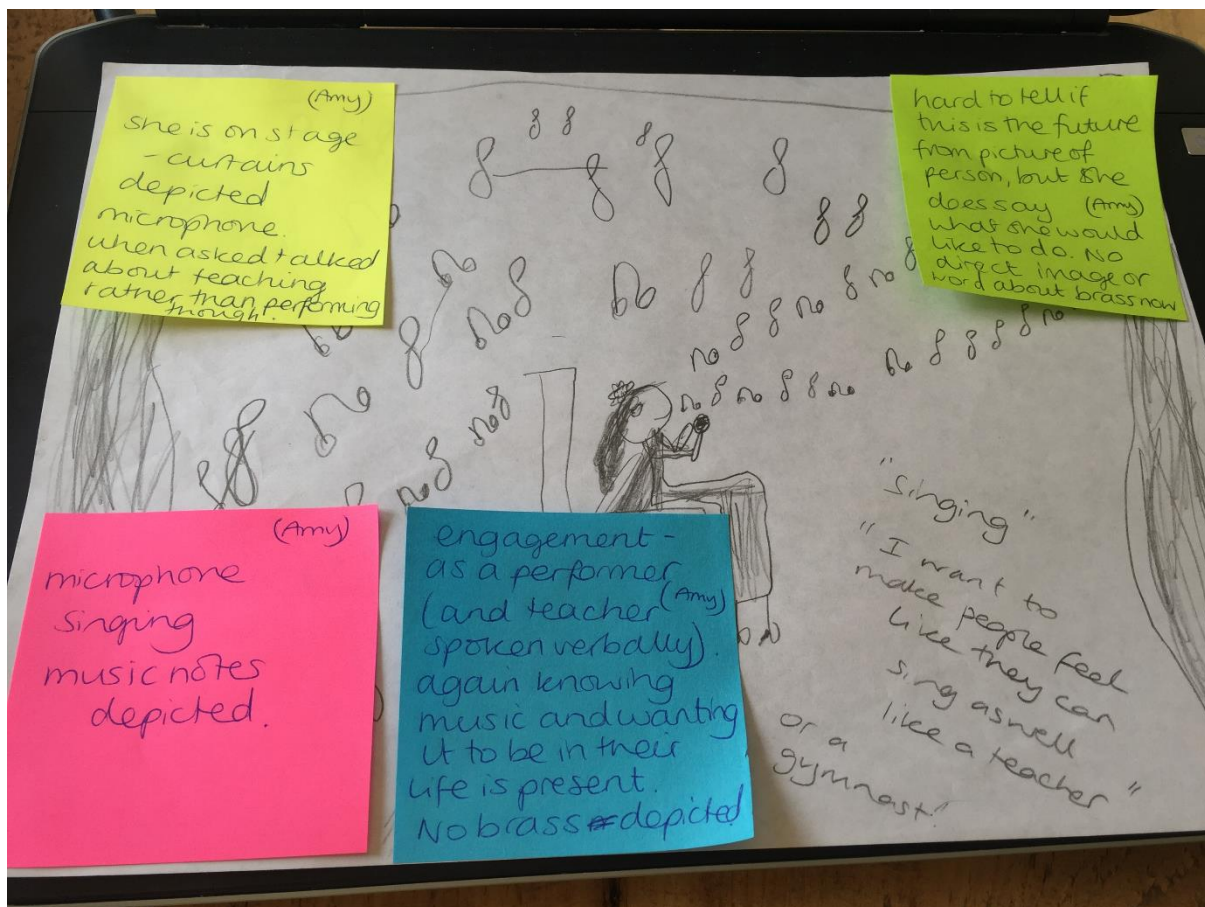 (Amy)
she is on stage
- curtains
depicted
microphone.
when asked talked
about teaching
rather than performing
though.
hard to tell if
this is the future
from picture of
person, but she
does say (Amy)
what she would
like to do. No
direct image or
word about brass now
(Amy)
microphone
singing
music notes
depicted.
engagement -
as a performer
(and teacher (Amy)
spoken verbally).
again knowing
music and wanting
it to be in their
life is present.
No brass depicted
"singing"
"I want to
make people feel
like they can
sing aswell
like a teacher"
or a
gymnast!